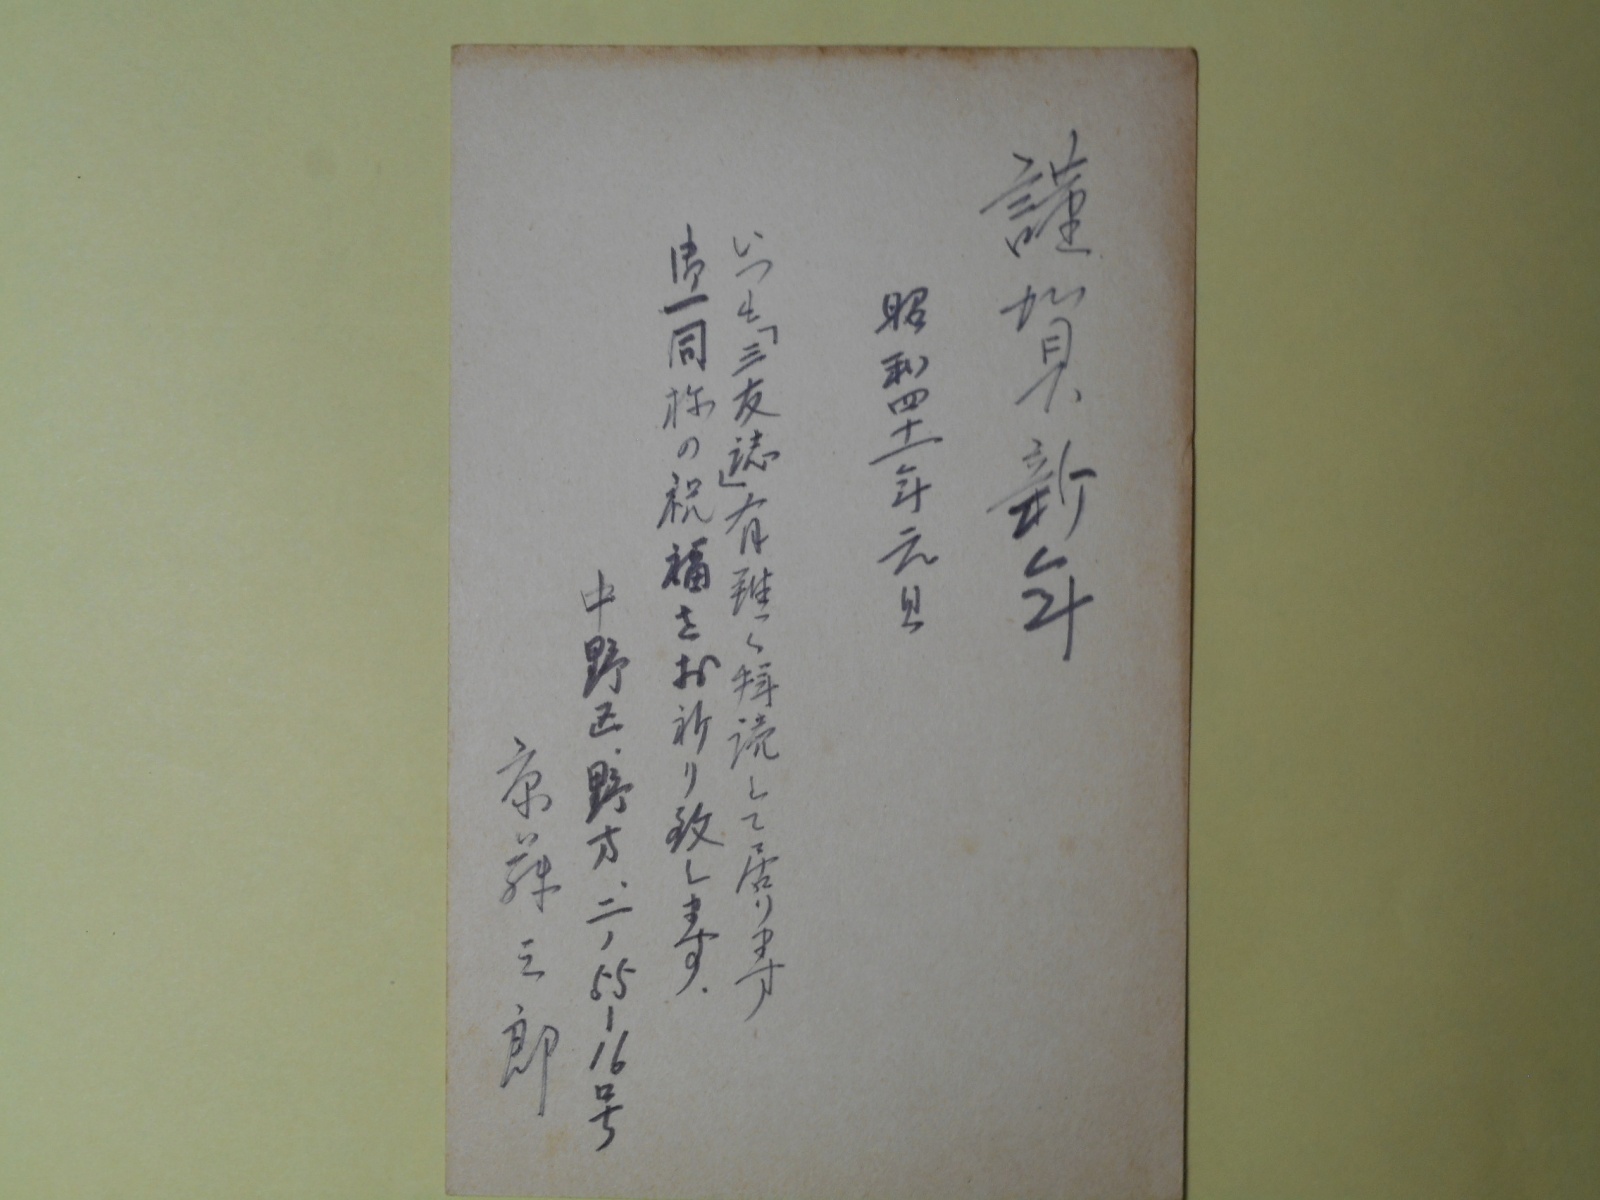 謹賀新年
昭和四十一年元旦
いつも「三友誌」有難く拝読して居ります
御一同様の祝福をお祈り致します.
中野区、野方、二ノ55-16号
京藤三郎